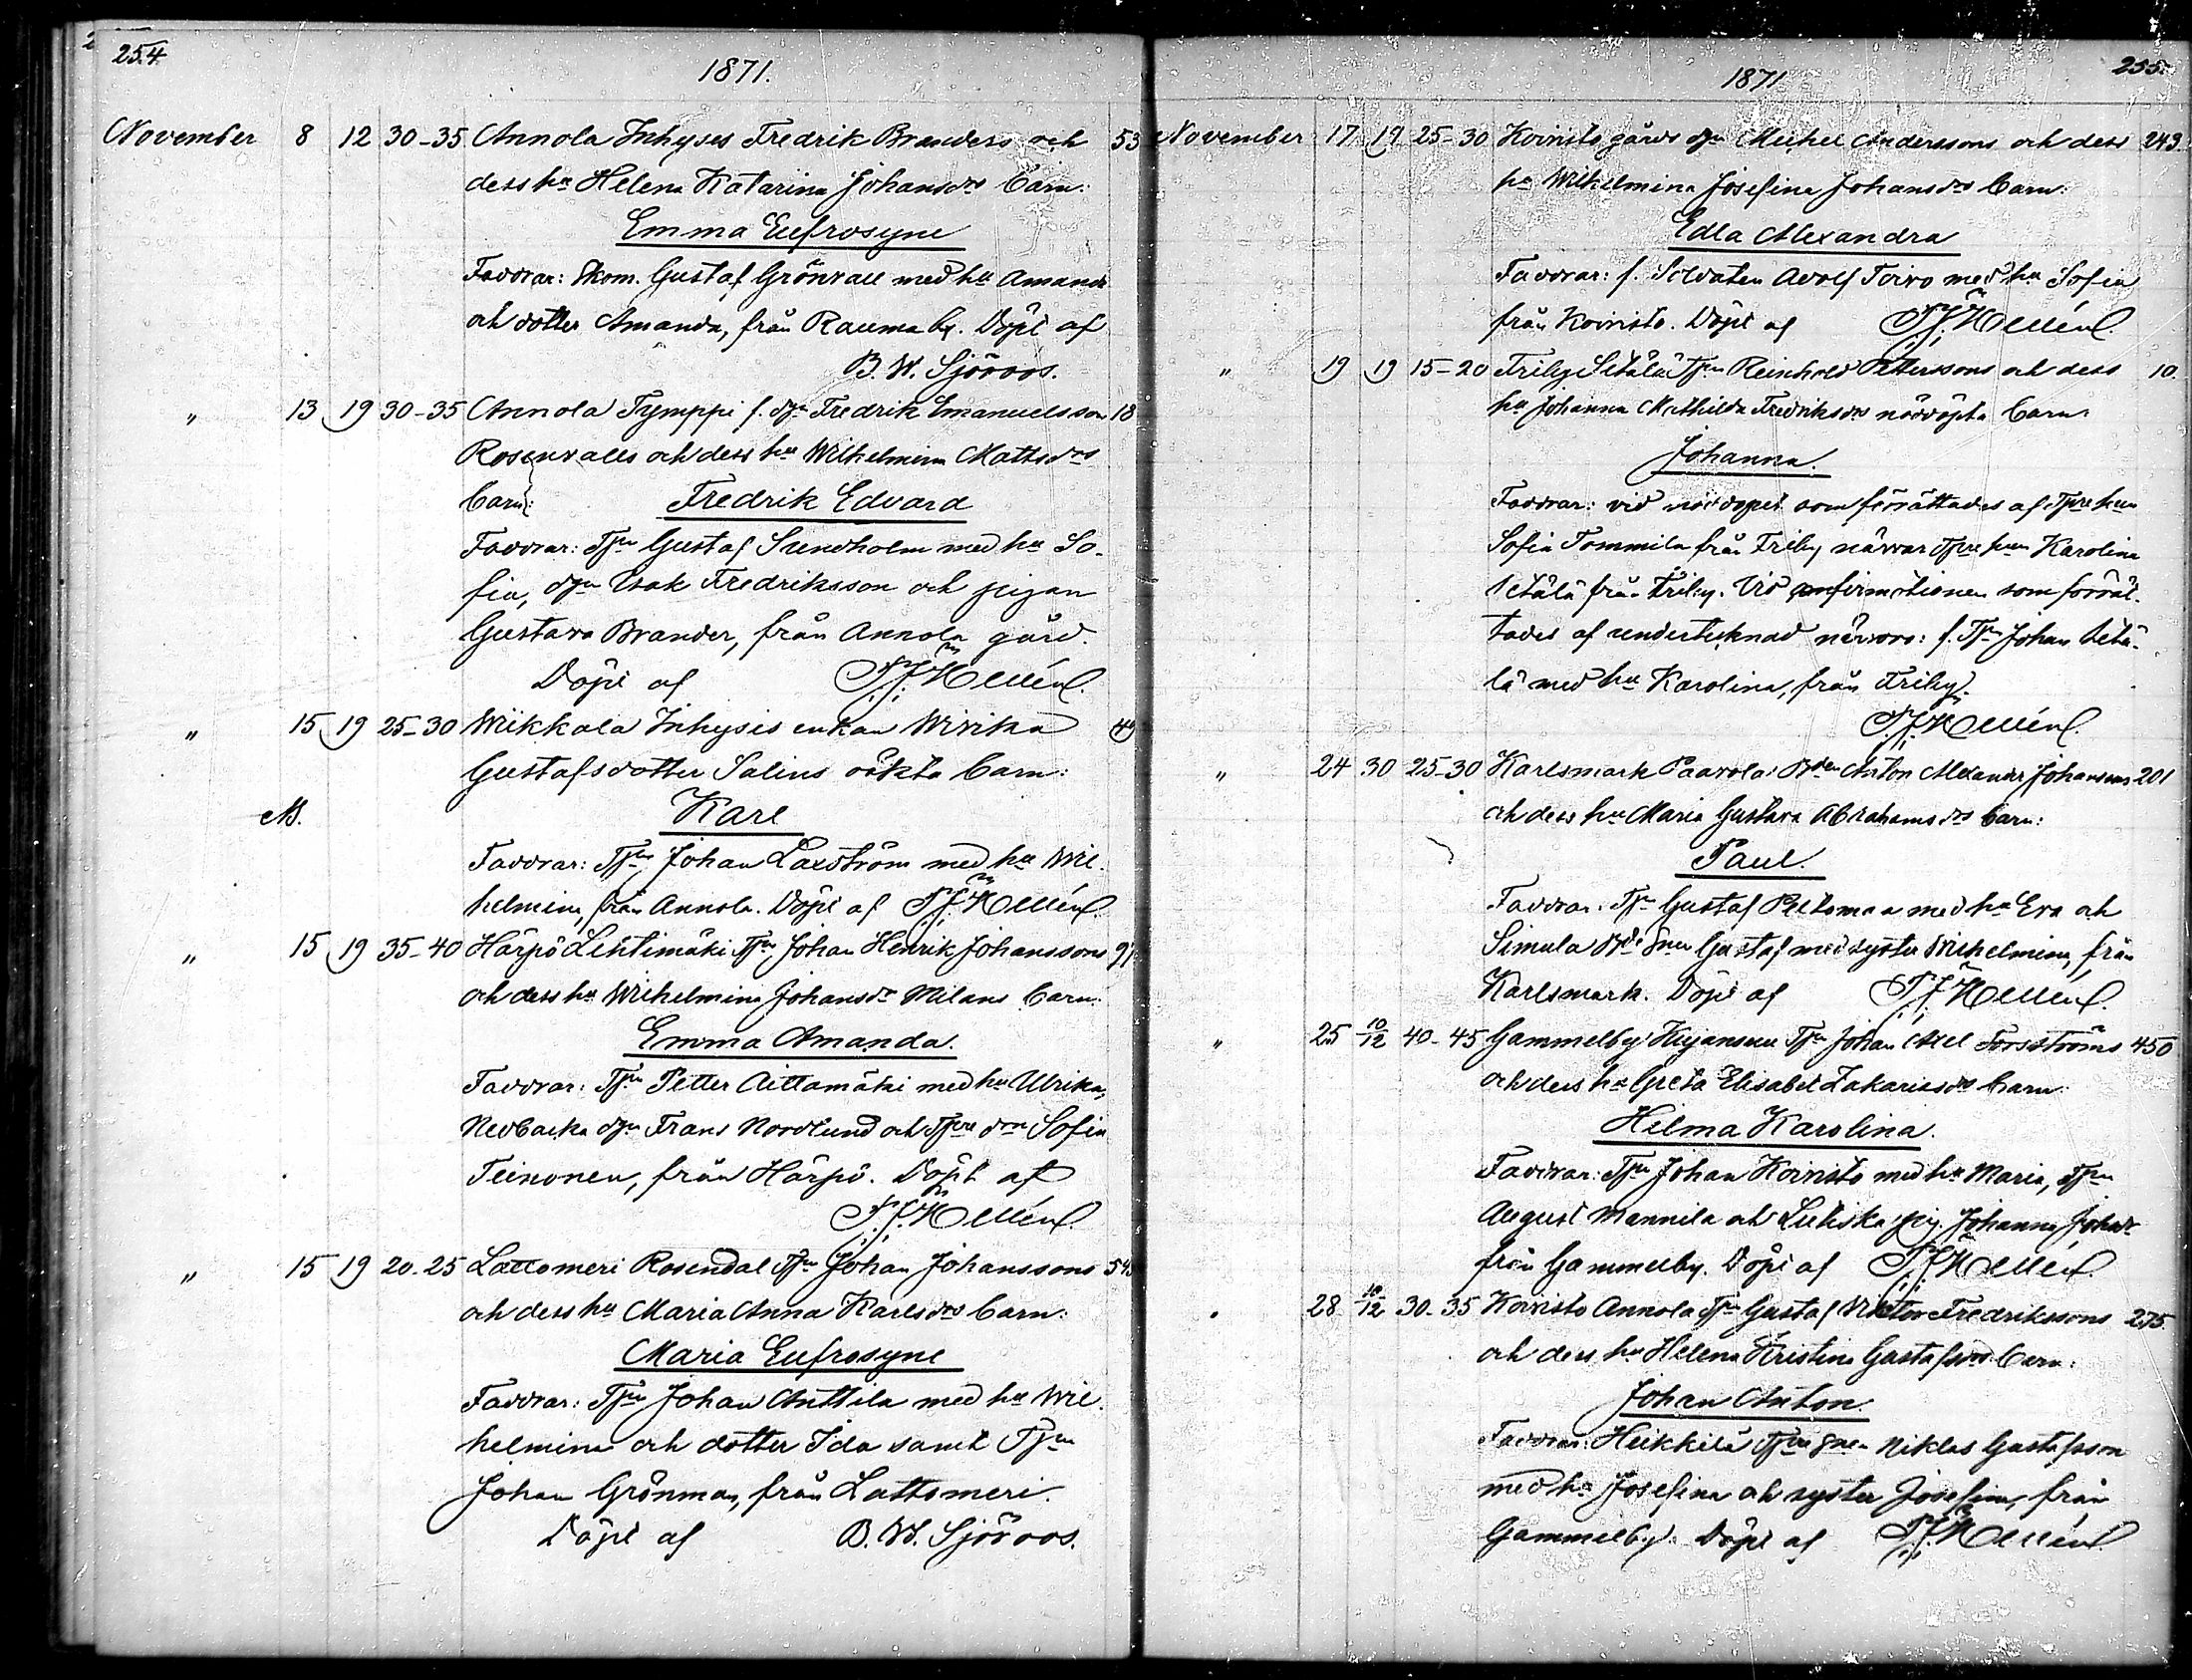 254.
1871.
November 8 12 30-35 Annola Inhyses Fredrik Branders och 53
dess hu Helena Katarina Johansdrs barn:
Emma Eufrosyne
Faddrar: Skom. Gustaf Grönvall med hu Amanda
och dotter Amanda, från Rauma by. Döpt af
B. W. Sjöroos.
" 13 19 30-35 Annola Tymppi f. dgn Fredrik Emanuelsson 18
Rosenvalls och dess hu Wilhelmina Mattsdrs
barn: Fredrik Edvard
Faddrar: Tjn Gustaf Sundholm med hu So-
fia, dgn Isak Fredriksson och pigan
Gustava Brander, från Annola gård.
Döpt af F. J. Hellén.
" 15 19 25-30 Wiikkala Inhysis enkan Wivika 49
Gustafsdotter Salins oäkta barn:
Karl
Faddrar: Tjn Johan Laxström med hu Wil-
helmina, från Annola. Döpt af F. J. Hellén.
" 15 19 35-40 Härpö Lehtimäki Tjn Johan Henrik Johanssons 97
och dess hu Wilhelmina Johansdr Milans barn:
Emma Amanda.
Faddrar: Tjn Petter Aittamäki med hu Ulrika,
Nedbacka dgn Frans Nordlund och Tjre drn Sofia
Teinonen, från Härpö. Döpt af
F. J. Hellén
" 15 19 20-25 Lattomeri Rosendal Tjn Johan Johanssons 543
och dess hu Maria Anna Karlsdrs barn:
Maria Eufrosyne
Faddrar: Tjn Johan Anttila med hu Wil-
helmina och dotter Ida samt Tjn
Johan Grönman, från Lattomeri.
Döpt af B. W. Sjöroos.
255.
1871
November 17 19 25-30 Koivisto gårds dgn Michel Anderssons och dess 243.
hu Wilhelmina Josefina Johansdrs barn:
Edla Alexandra
Faddrar: f. Soldaten Adolf Toivo med hu Sofia
från Koivisto. Döpt af F. J. Hellén.
" 19 19 15-20 Friby Setälä Tjn Reinhold Petterssons och dess 10.
hu Johanna Mathilda Fredriksdrs nöddöpta barn:
Johanna.
Faddrar: vid nöddopet som förrättades af Tjre hun
Sofia Tommila från Friby närvar Tjre hun Karolina
Setälä från Friby. Vid confirmationen som förrät-
tades af undertecknad närvoro: f. Tjn Johan Setä-
lä med hu Karolina, från Friby.
F. J. Hellén.
" 24 30 25-30 Karlsmark Paavola Bden Anton Alexander Johanssons 201
och dess hu Maria Gustava Abrahamsdrs barn:
Paul.
Faddrar. Tjn Gustaf Peltomaa med hu Eva och
Simula Bde Snn Gustaf med syster Wilhelmina, från
Karlsmark. Döpt af F. J. Hellén.
" 25 10/12 40-45 Gammelby Kujansuu Tjn Johan Axel Forsströms 450
och dess hu Greta Elisabet Zakariasdrs barn:
Hilma Karolina.
Faddrar: Tjn Johan Koivisto med hu Maria, Tjn
August Mannila och pig. Johanna Johsdr
från Gammelby. Döpt af F. J. Hellén.
" 28 10/12 30-35 Koivisto Annola Tjn Gustaf Viktor Fredrikssons 275.
och dess hu Helena Kristina Gustafsdrs barn:
Johan Anton.
Faddrar: Heikkilä Tjre Snn Niklas Gustafsson
med hu Josefina och syster Josefina, från
Gammelby. Döpt af F. J. Hellén.